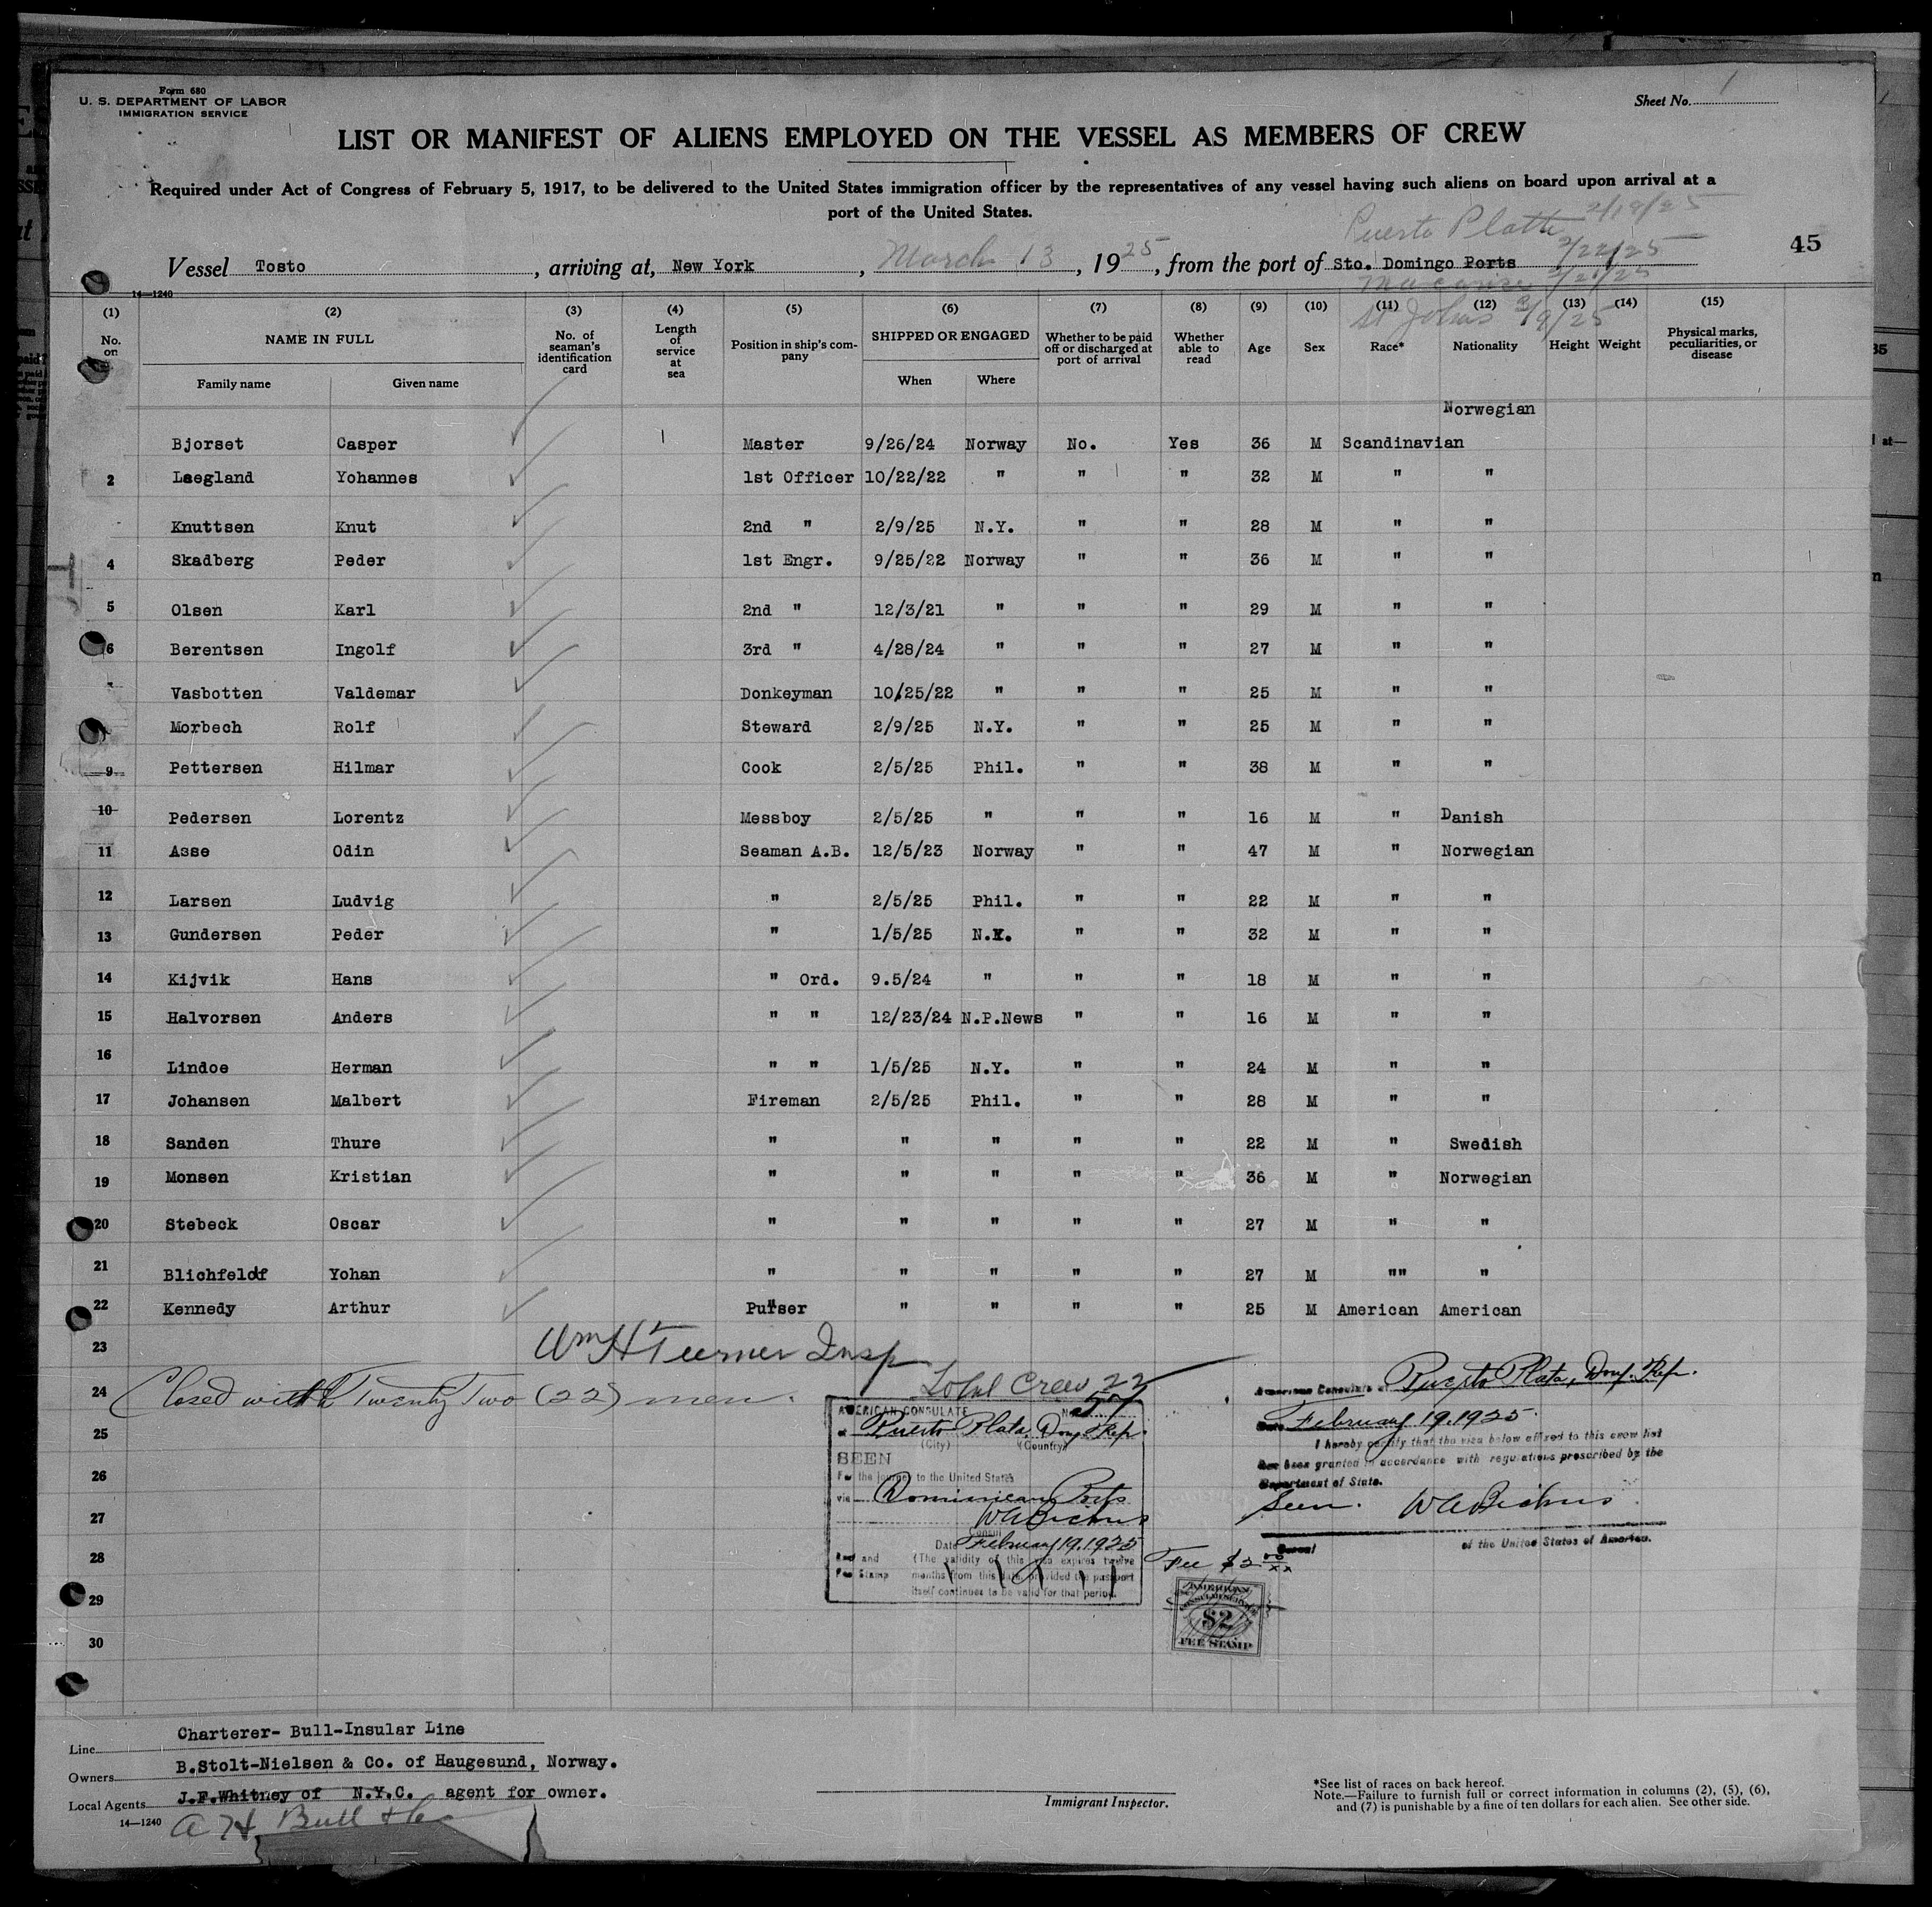 Form 680
U. S. DEPARTMENT OF LABOR
IMMIGRATION SERVICE
Sheet No. 1
LIST OR MANIFEST OF ALIENS EMPLOYED ON THE VESSEL AS MEMBERS OF CREW
Required under Act of Congress of February 5, 1917, to be delivered to the United States immigration officer by the representatives of any vessel having such aliens on board upon arrival at a
port of the United States.
Puerto Platte 2/19/25
2/22/25
45
Vessel Tosto, arriving at, New York, March 13, 1925, from the port of Sto. Domingo Ports
2/21/25
St Johns 3/9/25
14—1240
(1) (2) (3) (4) (5) (6) (7) (8) (9) (10) (11) (12) (13) (14) (15)
No. on NAME IN FULL No. of seaman's identification card Length of service at sea Position in ship's company SHIPPED OR ENGAGED Whether to be paid off or discharged at port of arrival Whether able to read Age Sex Race* Nationality Height Weight Physical marks, peculiarities, or disease
Family name Given name When Where
Norwegian
Bjorset Casper Master 9/26/24 Norway No. Yes 36 M Scandinavian
2 Laegland Yohannes 1st Officer 10/22/22 " " " 32 M " "
Knuttsen Knut 2nd " 2/9/25 N.Y. " " 28 M " "
4 Skadberg Peder 1st Engr. 9/25/22 Norway " " 36 M " "
5 Olsen Karl 2nd " 12/3/21 " " " 29 M " "
6 Berentsen Ingolf 3rd " 4/28/24 " " " 27 M " "
Vasbotten Valdemar Donkeyman 10/25/22 " " " 25 M " "
Morbech Rolf Steward 2/9/25 N.Y. " " 25 M " "
9 Pettersen Hilmar Cook 2/5/25 Phil. " " 38 M " "
10 Pedersen Lorentz Messboy 2/5/25 " " " 16 M " Danish
11 Asse Odin Seaman A.B. 12/5/23 Norway " " 47 M " Norwegian
12 Larsen Ludvig " 2/5/25 Phil. " " 22 M " "
13 Gundersen Peder " 1/5/25 N.Y. " " 32 M " "
14 Kijvik Hans " Ord. 9.5/24 " " " 18 M " "
15 Halvorsen Anders " " 12/23/24 N.P.News " " 16 M " "
16 Lindoe Herman " " 1/5/25 N.Y. " " 24 M " "
17 Johansen Malbert Fireman 2/5/25 Phil. " " 28 M " "
18 Sanden Thure " " " " " 22 M " Swedish
19 Monsen Kristian " " " " " 36 M " Norwegian
20 Stebeck Oscar " " " " " 27 M " "
21 Blichfeldt Yohan " " " " " 27 M "" "
22 Kennedy Arthur Purser " " " " 25 M American American
23 Wm H Turner Insp
24 Closed with Twenty Two (22) men.
Total Crew 22
25
26
27
28
29
30
AMERICAN CONSULATE No. 57
at Puerto Plata, Dom. Rep.
(City) (Country)
SEEN
For the journey to the United States
via Dominican Ports
W A Bickers
Consul
Date February 19, 1925
(The validity of this visa expires twelve
months from this date provided the passport
itself continues to be valid for that period.
Seal and
Fee Stamp
American Consulate at Puerto Plata, Dom. Rep.
Date February 19, 1925
I hereby certify that the visa below affixed to this crew list
has been granted in accordance with regulations prescribed by the
Department of State.
Seen. W A Bickers
Consul of the United States of America.
Fee $2 00/xx
AMERICAN
CONSULAR SERVICE
$2
FEE STAMP
Line Charterer- Bull-Insular Line
Owners B.Stolt-Nielsen & Co. of Haugesund, Norway.
Local Agents J.F.Whitney of N.Y.C. agent for owner.
14—1240 A H Bull & Co
Immigrant Inspector.
*See list of races on back hereof.
Note.—Failure to furnish full or correct information in columns (2), (5), (6),
and (7) is punishable by a fine of ten dollars for each alien. See other side.